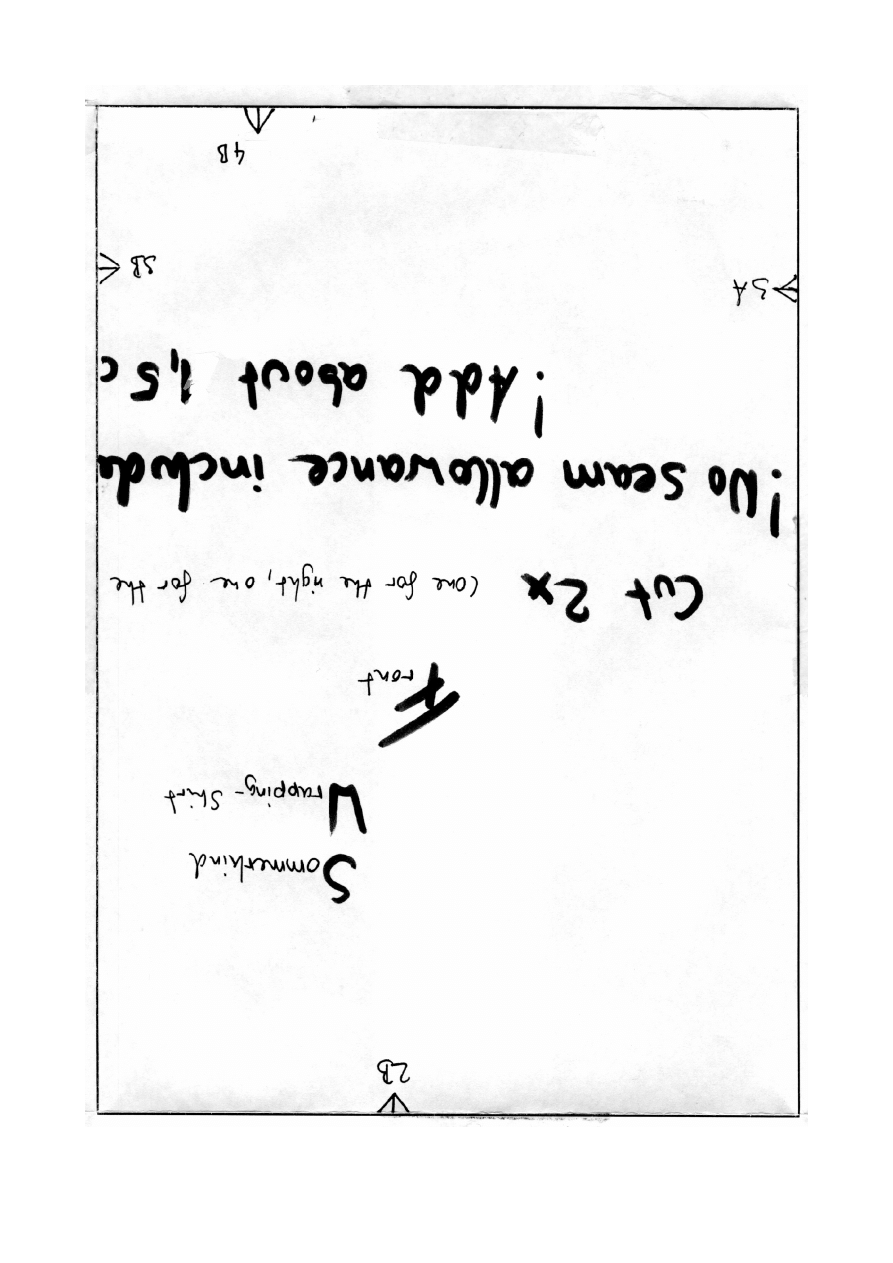 2B
Sommerkind
Wrapping-Shirt
Front
Cut 2x (one for the right, one for the
!No seam allowance include
!Add about 1,5 c
3A
3B
4B